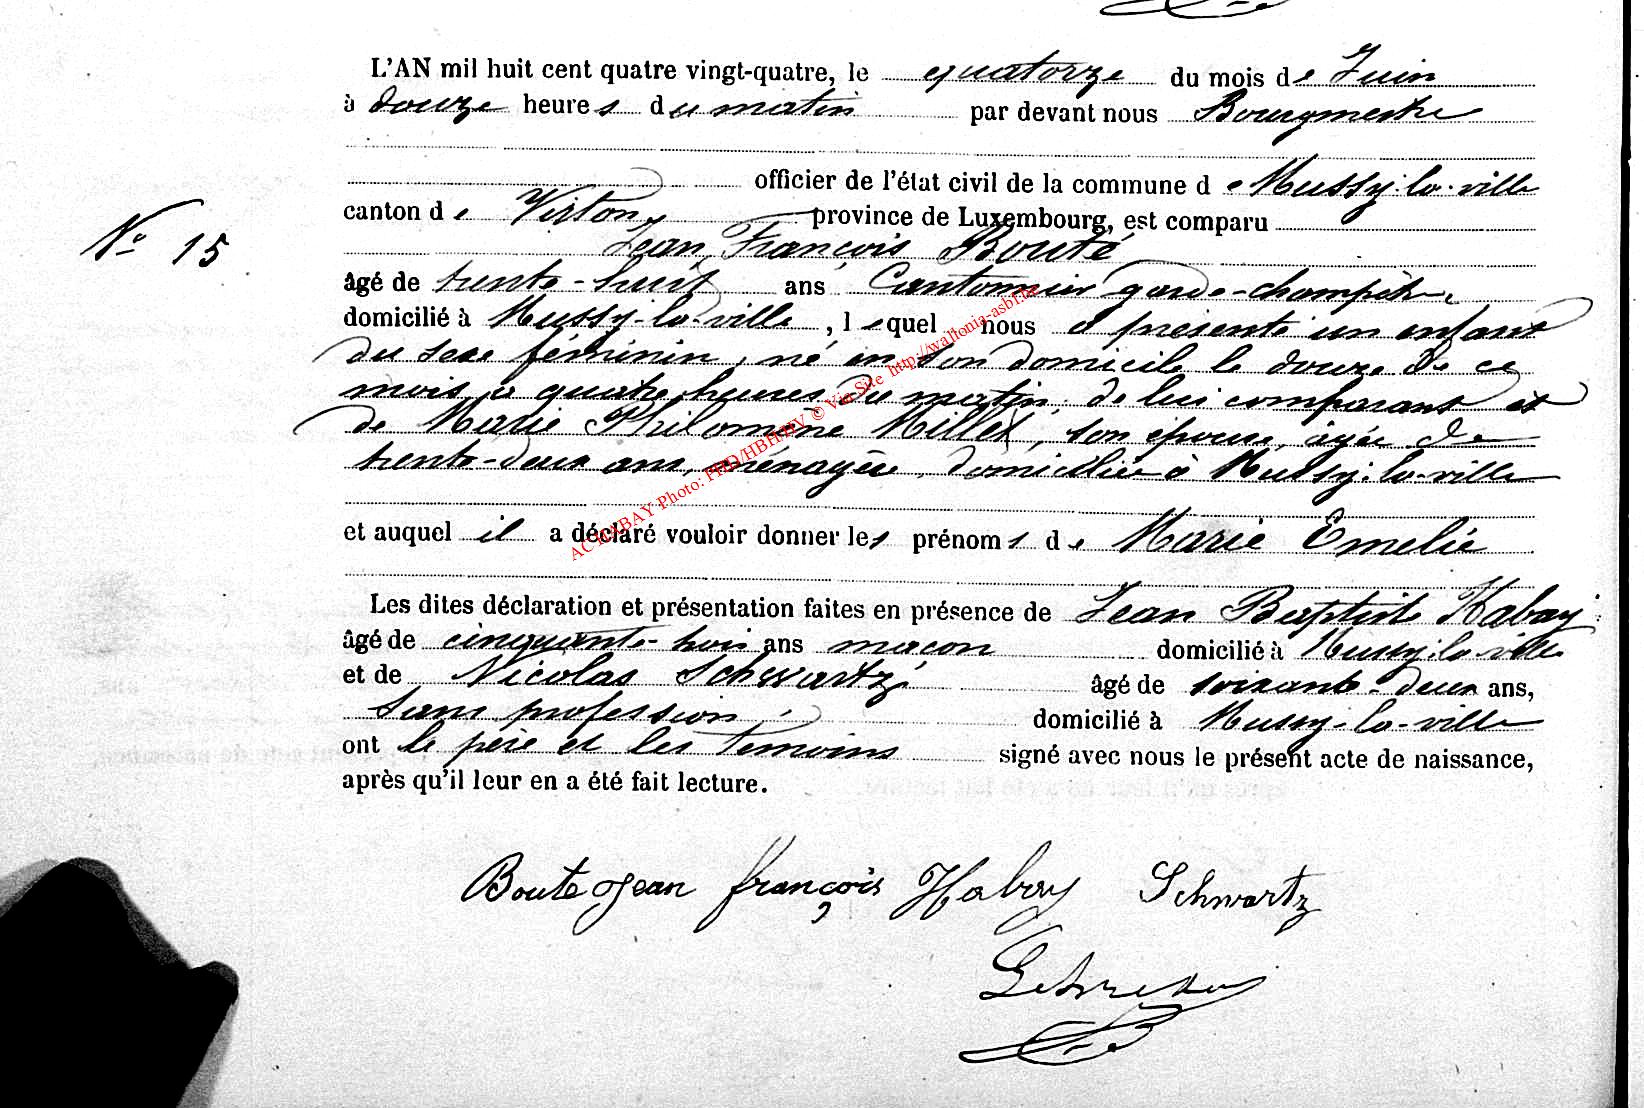 L'AN mil huit cent quatre vingt-quatre, le quatorze du mois de Juin
à douze heures du matin par devant nous Bourgmestre
officier de l'état civil de la commune de Mussy-la-ville
canton de Virton, province de Luxembourg, est comparu
Nº 15
Jean François Bouté
âgé de trente-huit ans Cantonnier garde-champêtre
domicilié à Mussy-la-ville, lequel nous a présenté un enfant
du sexe féminin, né en son domicile le douze de ce
mois, à quatre heures du matin, de lui comparant et
de Marie Philomène Millet, son épouse, âgée de
trente-deux ans, ménagère, domiciliée à Mussy-la-ville
et auquel il a déclaré vouloir donner les prénoms de Marie Emelie
Les dites déclaration et présentation faites en présence de Jean Baptiste Habay
âgé de cinquante-trois ans maçon domicilié à Mussy-la-ville
et de Nicolas Schwartz âgé de soixante-deux ans,
sans profession, domicilié à Mussy-la-ville
ont le père et les témoins signé avec nous le présent acte de naissance,
après qu'il leur en a été fait lecture.
Boute Jean françois Habay Schwartz
AC HABAY Photo: FHD/HBH/HV © Via Site http://wallonia-asbl.be